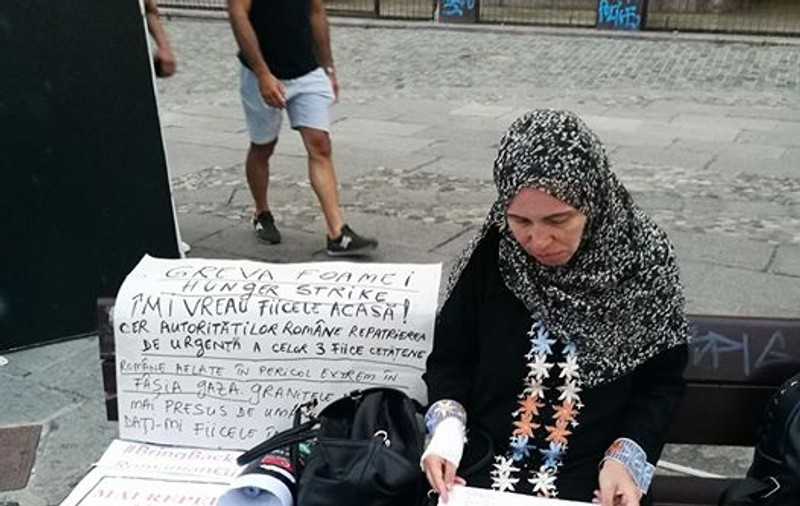 GREVA FOAMEI
HUNGER STRIKE
ÎMI VREAU FIICELE ACASĂ!
CER AUTORITĂȚILOR ROMÂNE REPATRIEREA
DE URGENȚĂ A CELOR 3 FIICE CETĂȚENE
ROMÂNE AFLATE ÎN PERICOL EXTREM ÎN
FÂȘIA GAZA. GRANIȚELE
MAI PRESUS DE
DAȚI-MI FIICELE
#BringBack
MAI REPE